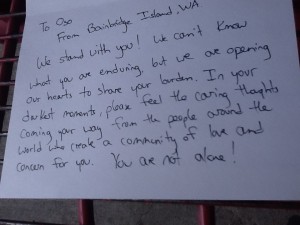 To Oso
From Bainbridge Island, WA
We stand with you! We can't know
what you are enduring, but we are opening
our hearts to share your burden. In your
darkest moments, please feel the caring thoughts
coming your way from the people around the
world who create a community of love and
concern for you. You are not alone!